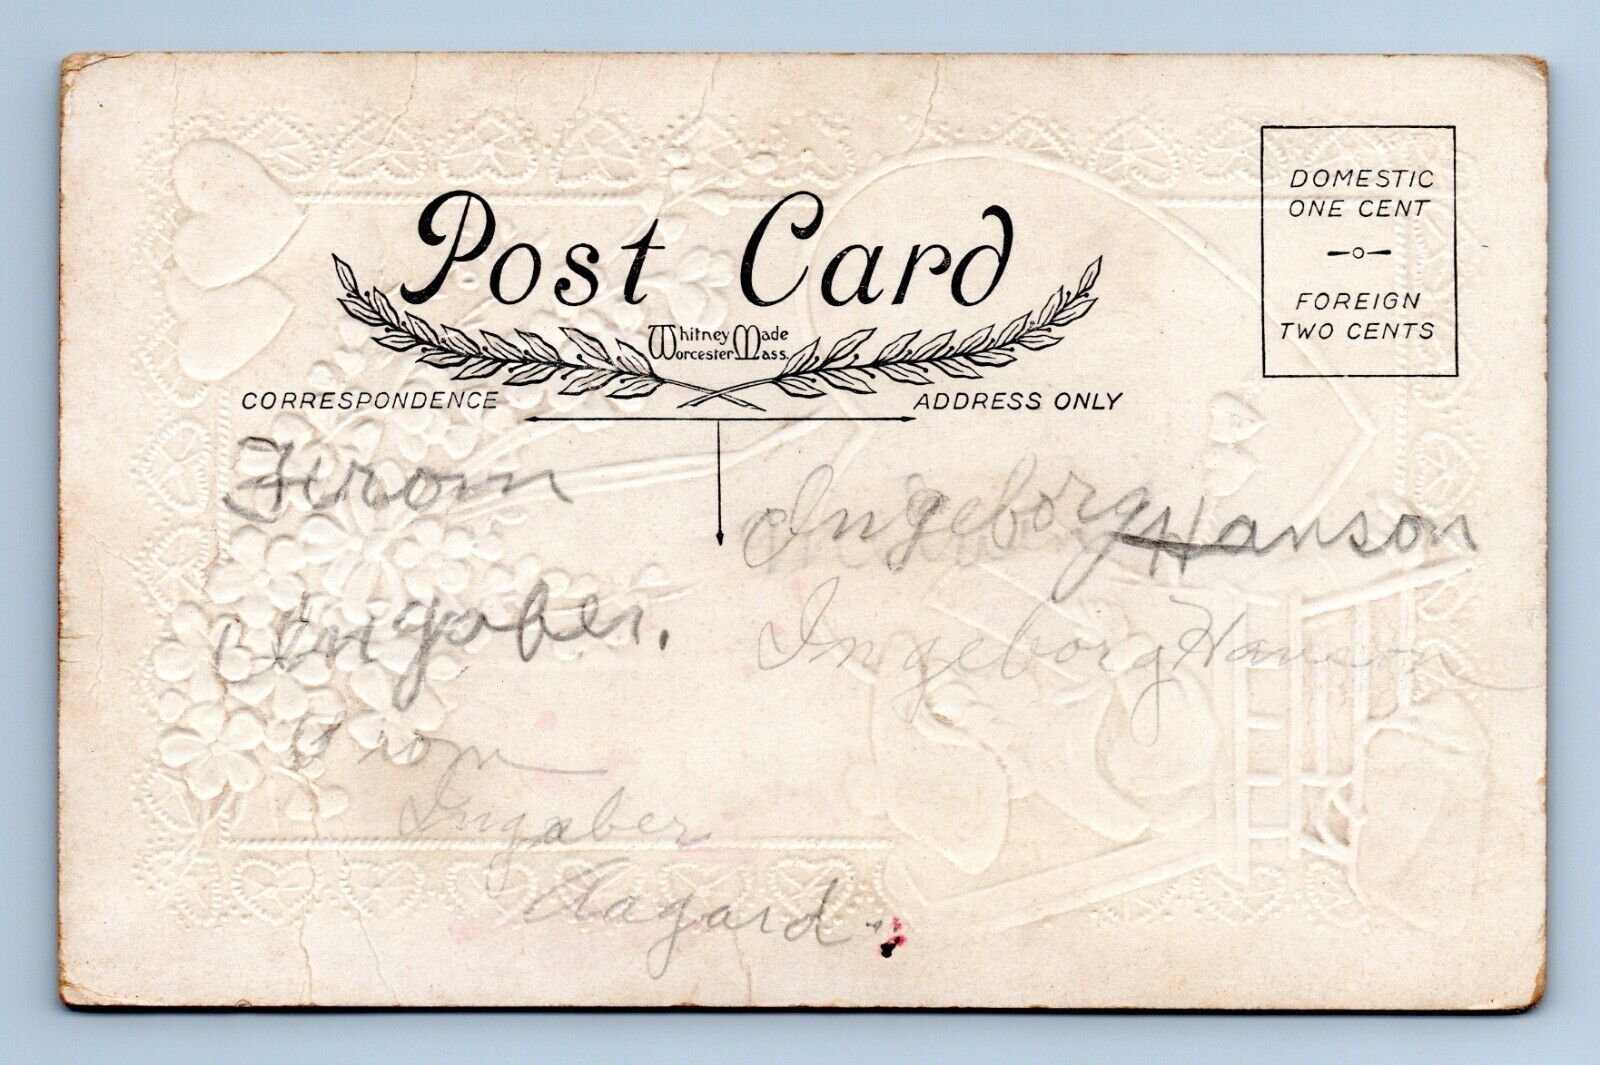 Post Card
Whitney Made
Worcester Mass.
DOMESTIC
ONE CENT
FOREIGN
TWO CENTS
CORRESPONDENCE
ADDRESS ONLY
From
Ingaber.
From
Ingaber
Aagard.
Ingeborg Hanson
Ingeborg Hanson